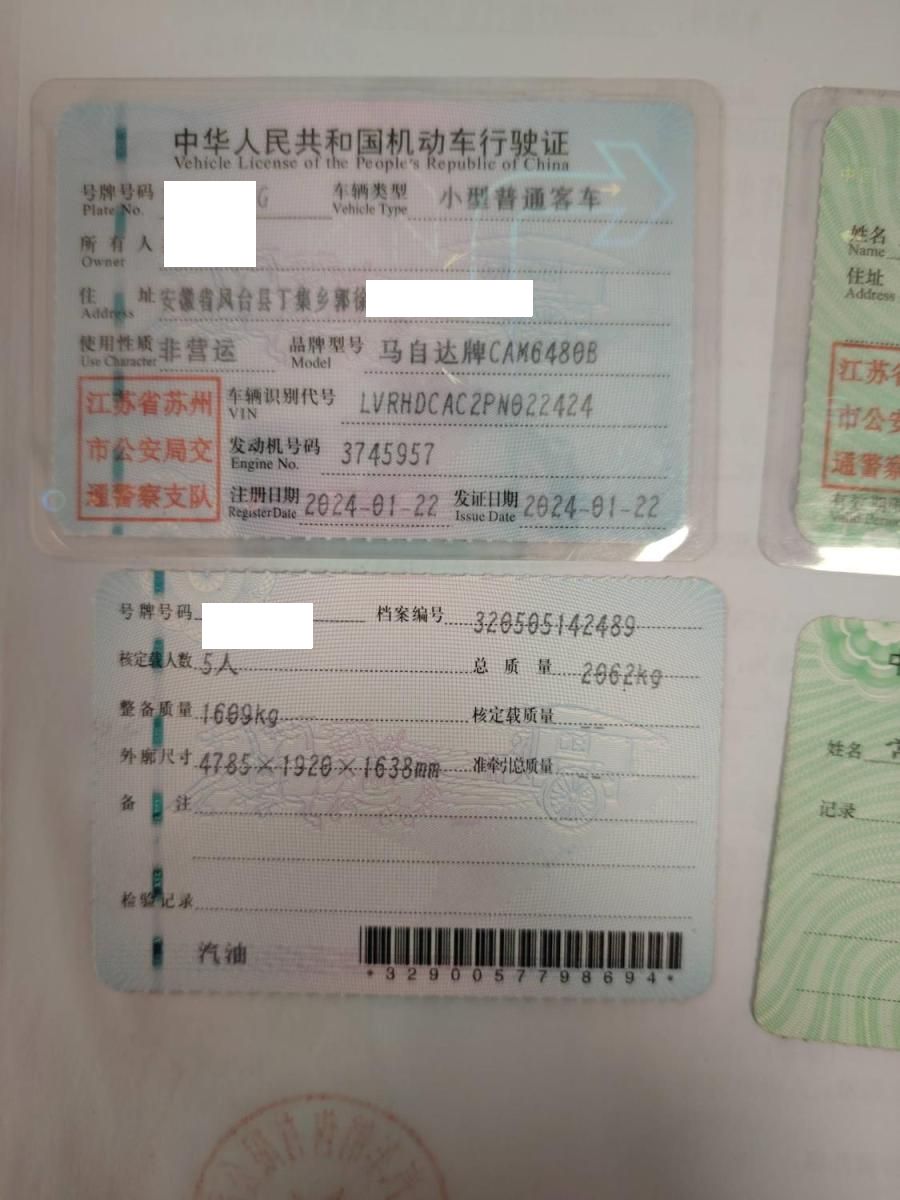 中华人民共和国机动车行驶证
Vehicle License of the People's Republic of China
号牌号码 G 车辆类型 小型普通客车
Plate No. Vehicle Type
所有人
Owner
住址 安徽省凤台县丁集乡郭徐
Address
使用性质 非营运 品牌型号 马自达牌CAM6480B
Use Character Model
江苏省苏州
市公安局交
通警察支队
车辆识别代号 LVRHDCAC2PN022424
VIN
发动机号码 3745957
Engine No.
注册日期 2024-01-22 发证日期 2024-01-22
Register Date Issue Date
号牌号码 档案编号 320505142489
核定载人数 5人 总质量 2062kg
整备质量 1609kg 核定载质量 --
外廓尺寸 4785×1920×1638mm 准牵引总质量 --
备注
检验记录
汽油
*3290057798694*
姓名
Name
住址
Address
江苏省
市公安
通警察
姓名
记录